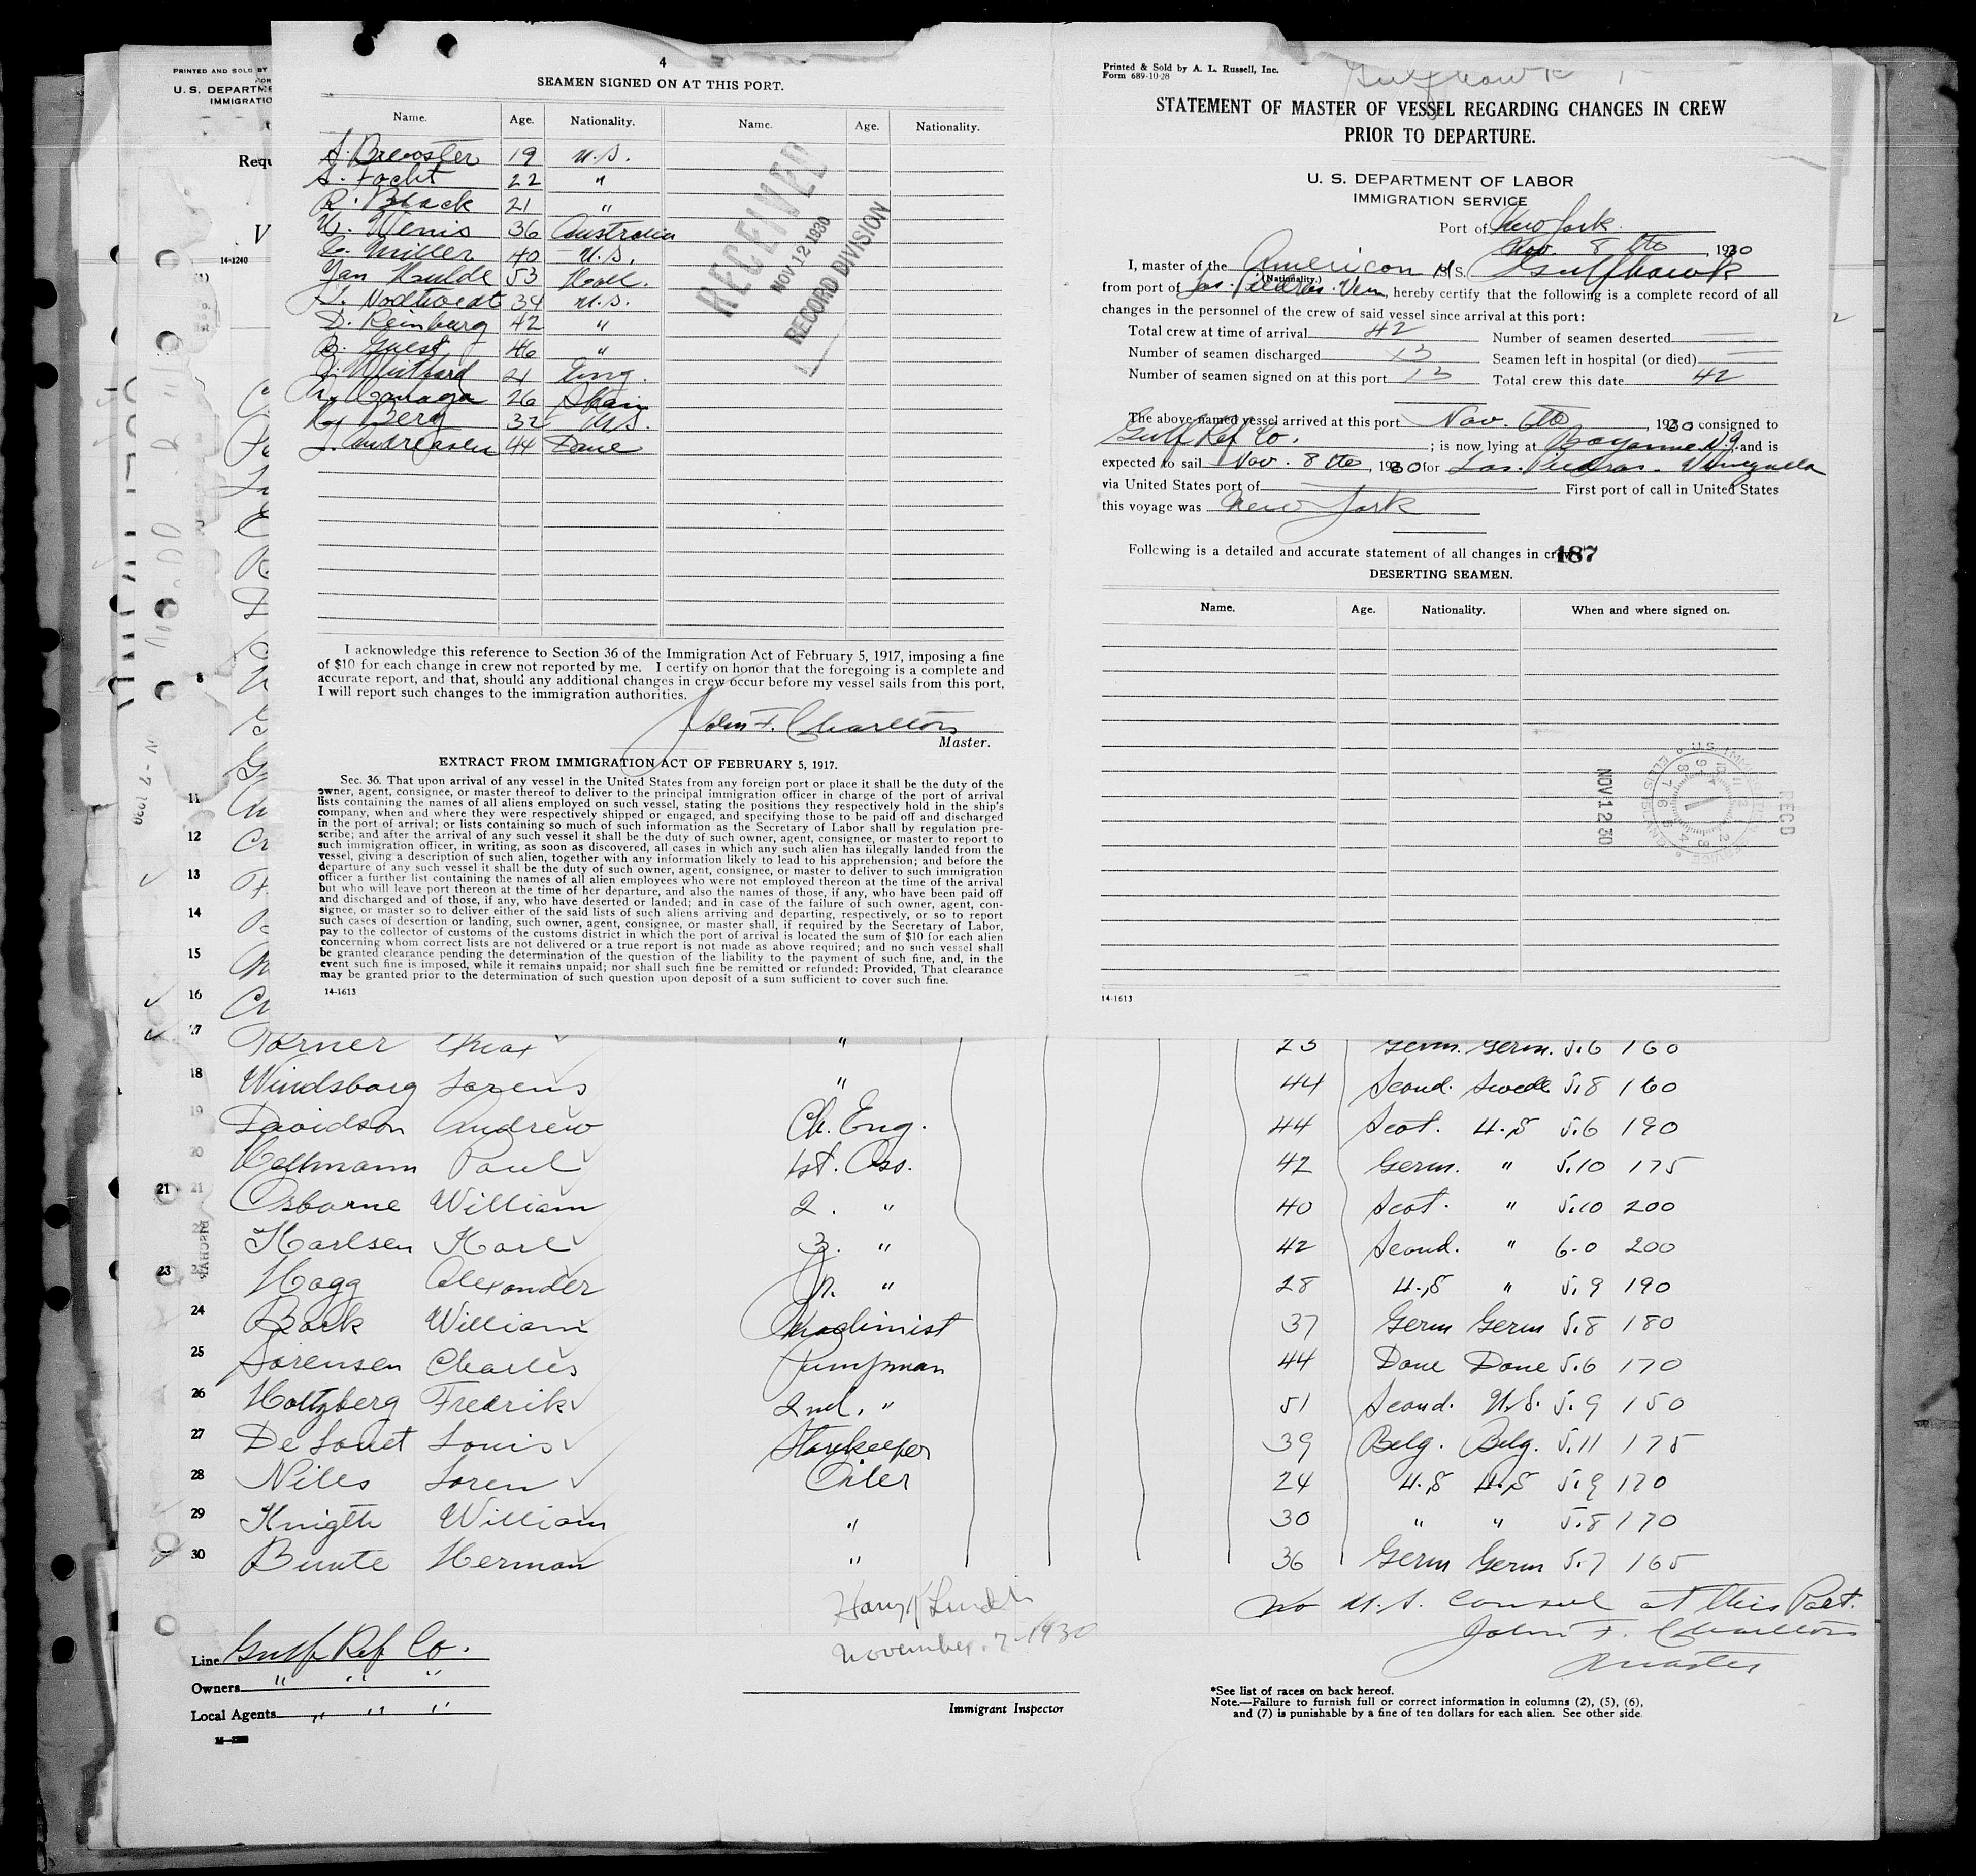 PRINTED AND SOLD BY
U. S. DEPARTME
IMMIGRATIO
Requ
V
14-1240
4
SEAMEN SIGNED ON AT THIS PORT.
Name. Age. Nationality. Name. Age. Nationality.
S. Brewster 19 U.S.
S. Focht 22 "
R. Black 21 "
36 Australia
C. Miller 40 U.S.
Jan Mulde 53 Holl.
34 U.S.
D. Reinburg 42 "
B. Guest 46 "
21 Eng.
26 Spain
Berg 32 U.S.
Andreasen 44 Dane
RECEIVED
NOV 12 1930
RECORD DIVISION
I acknowledge this reference to Section 36 of the Immigration Act of February 5, 1917, imposing a fine
of $10 for each change in crew not reported by me. I certify on honor that the foregoing is a complete and
accurate report, and that, should any additional changes in crew occur before my vessel sails from this port,
I will report such changes to the immigration authorities.
John F. Charlton
Master.
EXTRACT FROM IMMIGRATION ACT OF FEBRUARY 5, 1917.
Sec. 36. That upon arrival of any vessel in the United States from any foreign port or place it shall be the duty of the
owner, agent, consignee, or master thereof to deliver to the principal immigration officer in charge of the port of arrival
lists containing the names of all aliens employed on such vessel, stating the positions they respectively hold in the ship's
company, when and where they were respectively shipped or engaged, and specifying those to be paid off and discharged
in the port of arrival; or lists containing so much of such information as the Secretary of Labor shall by regulation pre-
scribe; and after the arrival of any such vessel it shall be the duty of such owner, agent, consignee, or master to report to
such immigration officer, in writing, as soon as discovered, all cases in which any such alien has illegally landed from the
vessel, giving a description of such alien, together with any information likely to lead to his apprehension; and before the
departure of any such vessel it shall be the duty of such owner, agent, consignee, or master to deliver to such immigration
officer a further list containing the names of all alien employees who were not employed thereon at the time of the arrival
but who will leave port thereon at the time of her departure, and also the names of those, if any, who have been paid off
and discharged and of those, if any, who have deserted or landed; and in case of the failure of such owner, agent, con-
signee, or master so to deliver either of the said lists of such aliens arriving and departing, respectively, or so to report
such cases of desertion or landing, such owner, agent, consignee, or master shall, if required by the Secretary of Labor,
pay to the collector of customs of the customs district in which the port of arrival is located the sum of $10 for each alien
concerning whom correct lists are not delivered or a true report is not made as above required; and no such vessel shall
be granted clearance pending the determination of the question of the liability to the payment of such fine, and, in the
event such fine is imposed, while it remains unpaid; nor shall such fine be remitted or refunded: Provided, That clearance
may be granted prior to the determination of such question upon deposit of a sum sufficient to cover such fine.
14-1613
Printed & Sold by A. L. Russell, Inc.
Form 689-10-28
Gulfhawk
STATEMENT OF MASTER OF VESSEL REGARDING CHANGES IN CREW
PRIOR TO DEPARTURE.
U. S. DEPARTMENT OF LABOR
IMMIGRATION SERVICE
Port of New York
Nov. 8 th, 1930
I, master of the American S. S. Gulfhawk
(Nationality.)
from port of Las Piedras. Ven, hereby certify that the following is a complete record of all
changes in the personnel of the crew of said vessel since arrival at this port:
Total crew at time of arrival 42 Number of seamen deserted
Number of seamen discharged 13 Seamen left in hospital (or died)
Number of seamen signed on at this port 13 Total crew this date 42
The above-named vessel arrived at this port Nov. 6th, 1930 consigned to
Gulf Ref Co. ; is now lying at Bayonne N.J. and is
expected to sail Nov. 8 th, 1930 for Las. Piedras. Venezuela
via United States port of First port of call in United States
this voyage was New York
Following is a detailed and accurate statement of all changes in crew:
187
DESERTING SEAMEN.
Name. Age. Nationality. When and where signed on.
REC'D
NOV 12 30
14-1613
8
11
12
13
14
15
16
17 " 23 Germ. Germ. 5.6 160
18 Windsborg Lorens " 44 Scand. Swede 5.8 160
19 Davidson Andrew Ch. Eng. 44 Scot. U.S 5.6 190
20 Paul 1st. Ass. 42 Germ. " 5.10 175
21 21 Osborne William 2. " 40 Scot. " 5.10 200
Karlsen Karl 3. " 42 Scand. " 6-0 200
23 Hogg Alexander Jr. " 28 U.S " 5.9 190
24 Bock William Machinist 37 Germ Germ 5.8 180
25 Sorensen Charles Pumpman 44 Dane Dane 5.6 170
26 Holtzberg Fredrik 2nd. " 51 Scand. U.S. 5.9 150
27 De Louet Louis Storekeeper 39 Belg. Belg. 5.11 175
28 Niles Loren Oiler 24 U.S U.S 5.9 170
29 Knigth William " 30 " " 5.8 170
30 Bunte Herman " 36 Germ Germ 5.7 165
No U.S. Consul at this Port.
John F. Charlton
Master
November. 7-1930
Line Gulf Ref Co.
Owners " " "
Local Agents " " "
Immigrant Inspector
*See list of races on back hereof.
Note.—Failure to furnish full or correct information in columns (2), (5), (6),
and (7) is punishable by a fine of ten dollars for each alien. See other side.